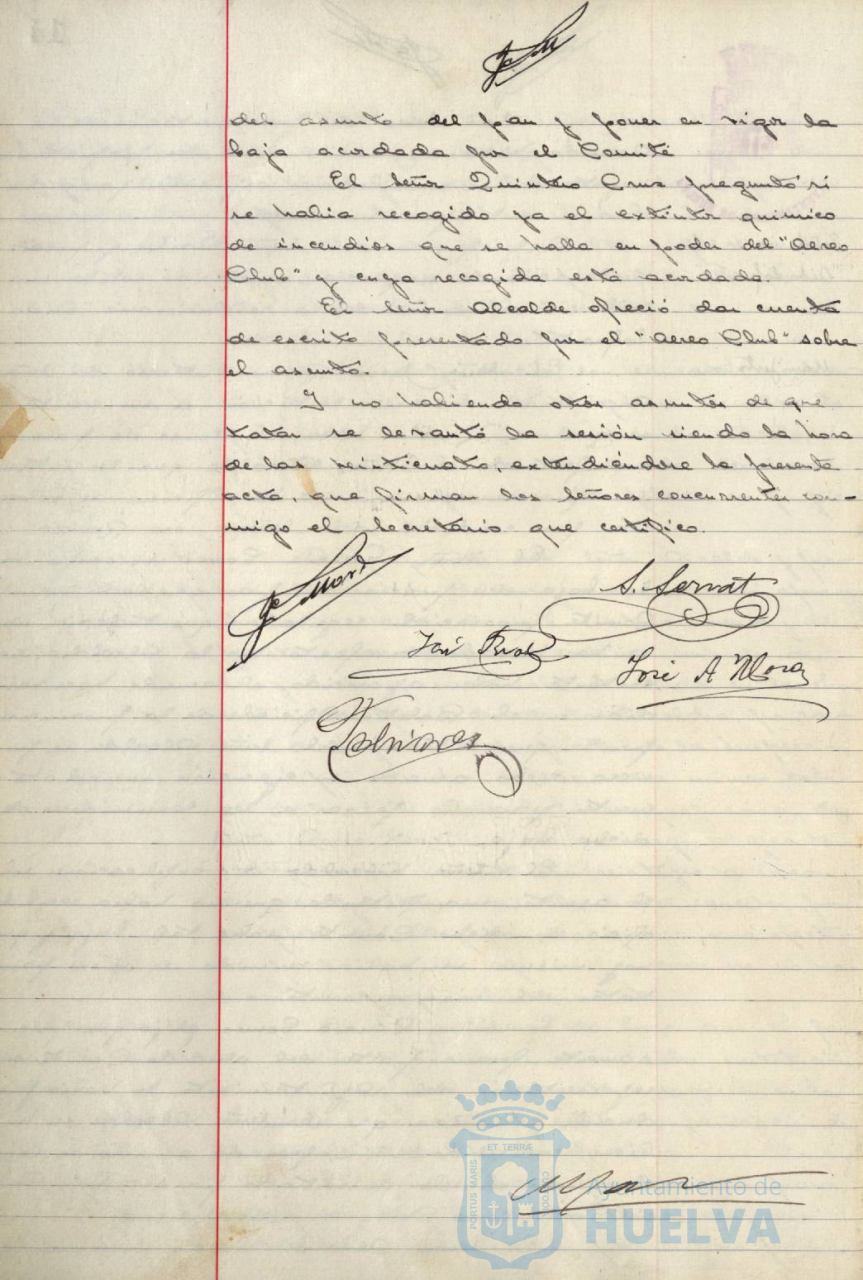 del asunto del pan y poner en vigor la
baja acordada por el Comité
El Señor Quintero Cruz preguntó si
se habia recogido ya el extintor quimico
de incendios que se halla en poder del "Aereo
Club" y cuya recogida está acordada.
El Señor Alcalde ofreció dar cuenta
de escrito presentado por el "Aereo Club" sobre
el asunto.
Y no habiendo otros asuntos de que
tratar se levantó la sesión siendo la hora
de las veinticuatro, extendiéndose la presente
acta, que firman los Señores concurrentes con-
migo el Secretario que certifico.
S. Serrat
José
José A Mora
ET TERRÆ
PORTUS MARIS
CUSTODIO
Ayuntamiento de
HUELVA